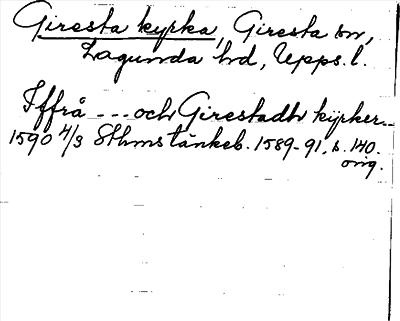 Giresta kyrka, Giresta sn,
Lagunda hd, Upps. l.
Iffrå ... och Girestadh kÿrker
1590 4/3 Sthms tänkeb. 1589-91, s. 140.
orig.